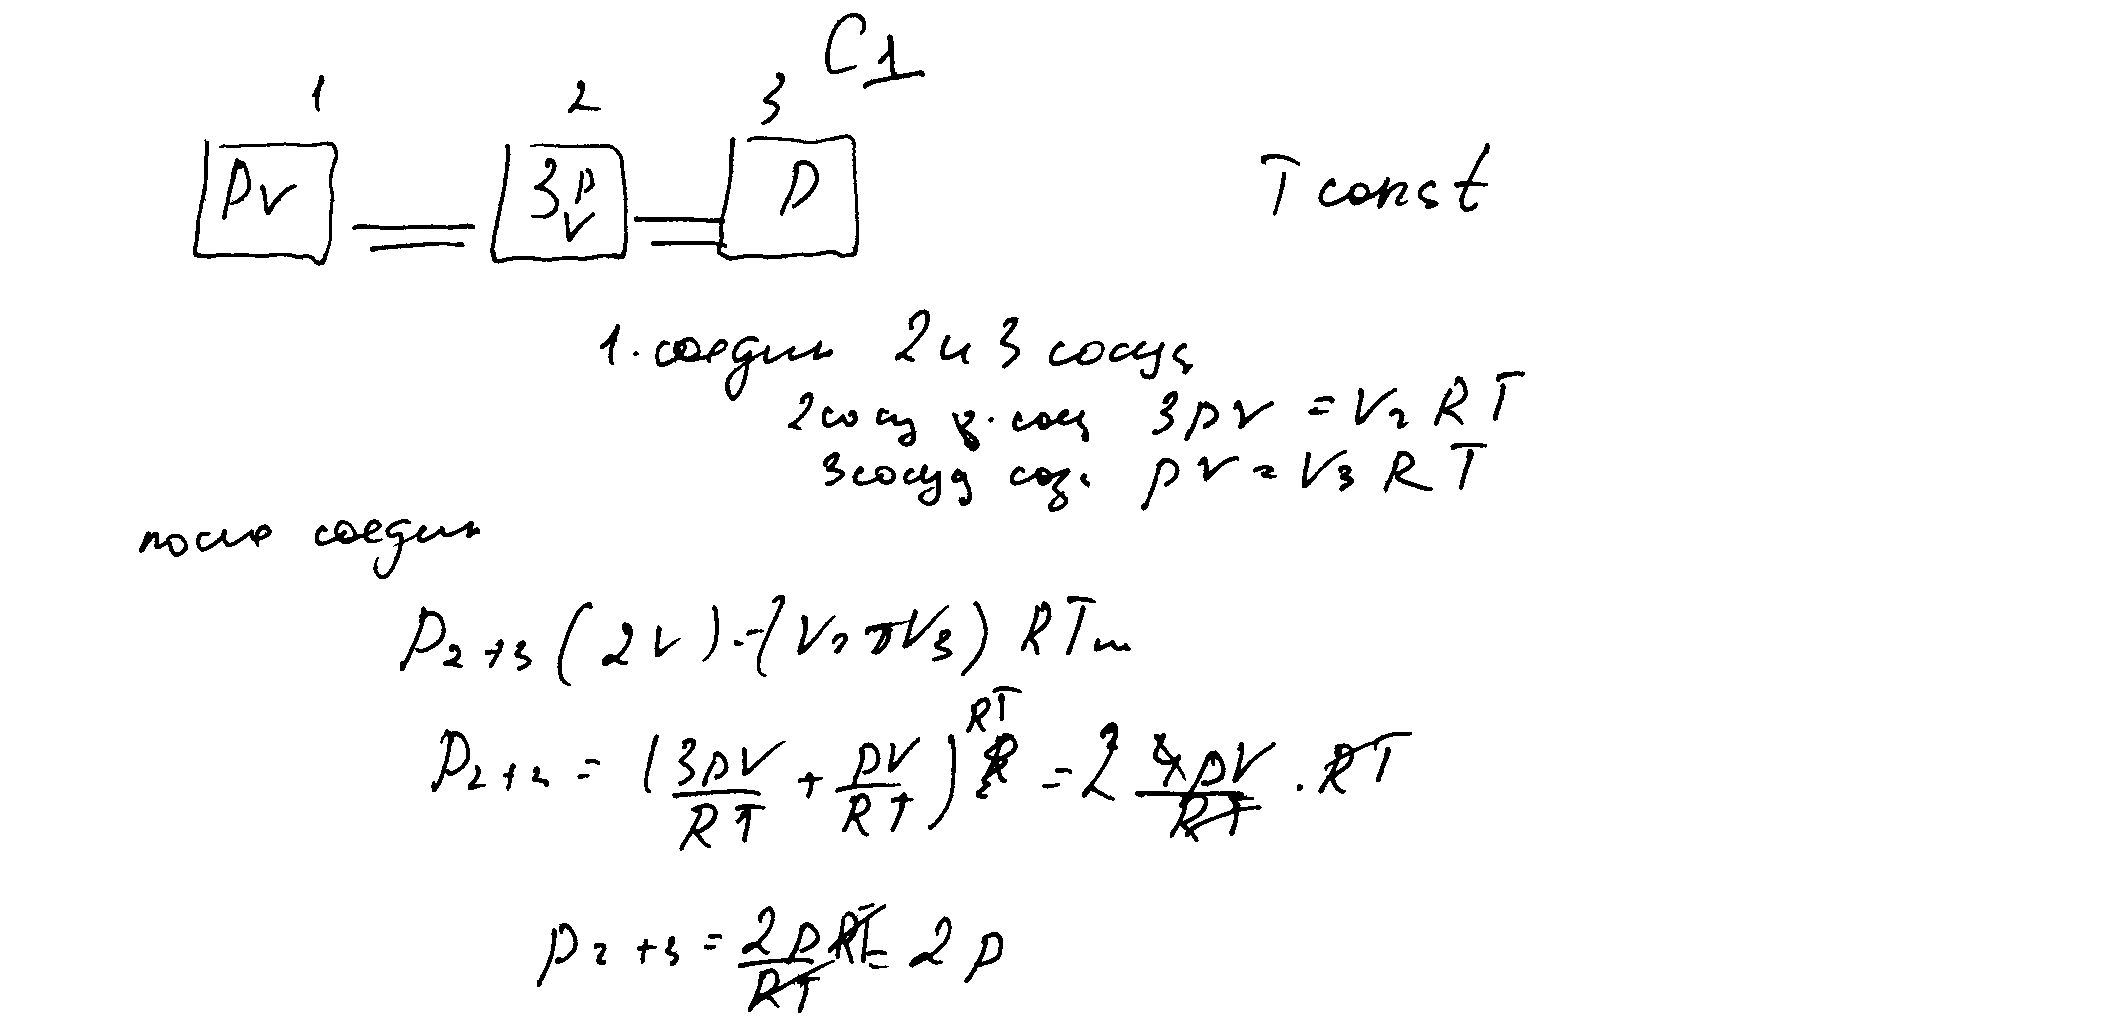 C1
1 2 3
pV 3p V p
T const
1. соедин 2 и 3 сосуд
2 сосуд 3pV = V₂ RT
3 сосуд pV = V₃ RT
после соедин
P₂₊₃ (2V) = (V₂ + V₃) RT
P₂₊₃ = (3pV/RT + pV/RT) RT = 2 4pV/RT · RT
p₂₊₃ = 2p RT/RT = 2p